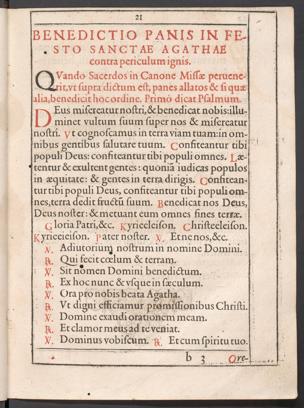 21
BENEDICTIO PANIS IN FE-
STO SANCTAE AGATHAE
contra periculum ignis.
QVando Sacerdos in Canone Missæ peruene-
rit, vt supra dictum est, panes allatos & si quæ
alia, benedicit hoc ordine. Primò dicat Psalmum.
DEus misereatur nostri, & benedicat nobis: illu-
minet vultum suum super nos & misereatur
nostri. Vt cognoscamus in terra viam tuam: in om-
nibus gentibus salutare tuum. Confiteantur tibi
populi Deus: confiteantur tibi populi omnes. Læ-
tentur & exultent gentes: quoniã iudicas populos
in æquitate: & gentes in terra dirigis. Confitean-
tur tibi populi Deus, confiteantur tibi populi om-
nes, terra dedit fructũ suum. Benedicat nos Deus,
Deus noster: & metuant eum omnes fines terræ.
Gloria Patri, &c. Kyrieeleison. Christeeleison.
Kyrieeleison. Pater noster. ℣. Et ne nos, &c.
℣. Adiutorium nostrum in nomine Domini.
℟. Qui fecit cœlum & terram.
℣. Sit nomen Domini benedictum.
℟. Ex hoc nunc & vsque in sæculum.
℣. Ora pro nobis beata Agatha.
℟. Vt digni efficiamur promissionibus Christi.
℣. Domine exaudi orationem meam.
℟. Et clamor meus ad te veniat.
℣. Dominus vobiscum. ℟. Et cum spiritu tuo.
b 3 Ore-